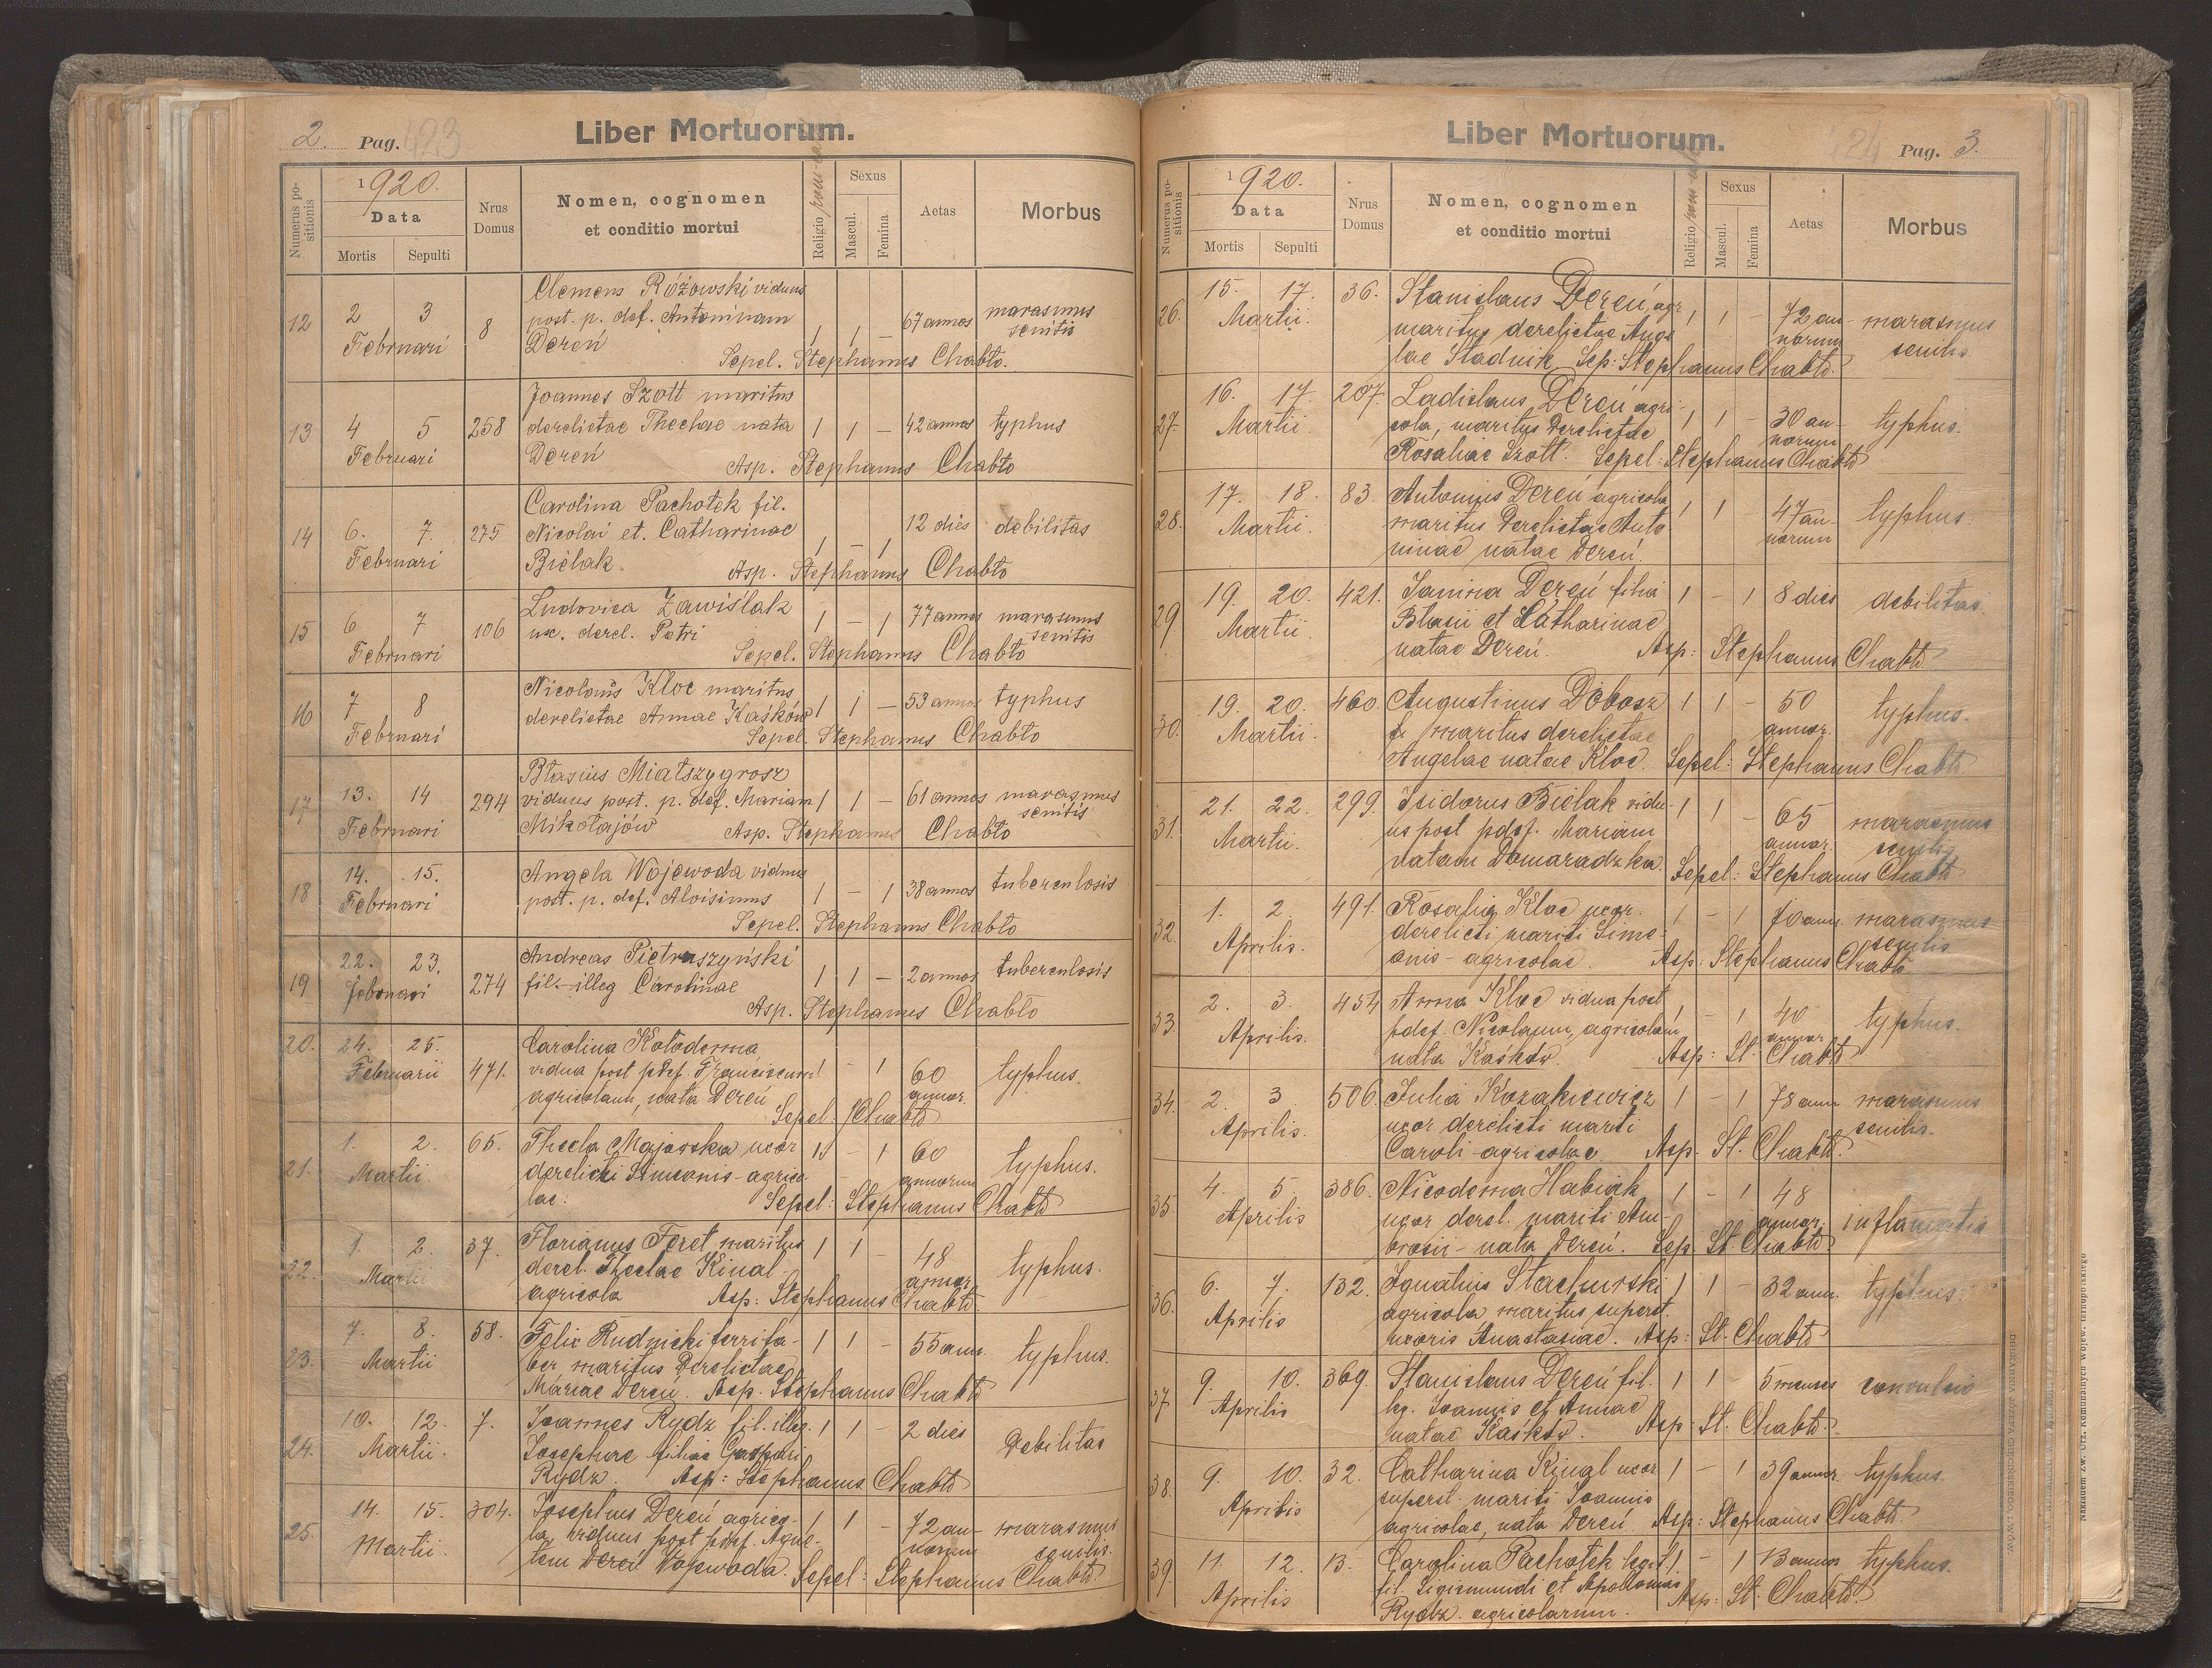 2. Pag. 423
Liber Mortuorum.
Numerus positionis
1920.
Data
Mortis Sepulti
Nrus Domus
Nomen, cognomen
et conditio mortui
Religio
Sexus
Mascul. Femina
Aetas
Morbus
Clemens Różowski viduus
12 2 3 8 post. p. def. Antoninam 1 1 – 67 annos marasmus
Februari Dereń senitis
Sepel. Stephanus Chabło.
Joannes Szott maritus
13 4 5 258 derelictae Theclae nata 1 1 – 42 annos typhus
Februari Dereń
Asp. Stephanus Chabło
Carolina Pachołek fil.
14 6. 7. 275 Nicolai et. Catharinae 1 – 1 12 dies debilitas
Februari Bielak.
Asp. Stephanus Chabło
Ludovica Zawiślak
15 6 7 106 ux. derel. Petri 1 – 1 77 annos marasmus
Februari senitis
Sepel. Stephanus Chabło
Nicolaus Kloc maritus
16 7 8 derelictae Annae Kaśków 1 1 – 53 annos typhus
Februari
Sepel. Stephanus Chabło
Błasius Miałszygrosz
17 13. 14 294 viduus post. p. def. Mariam 1 1 – 61 annos marasmus
Februari Mikołajów senitis
Asp. Stephanus Chabło
Angela Wojewoda viduus
18 14. 15. post. p. def. Aloisimus 1 – 1 38 annos tuberculosis
Februari
Sepel. Stephanus Chabło
Andreas Pietruszyński
19 22. 23. 274 fil.-illeg Carolinae 1 1 – 2 annos tuberculosis
februari
Asp. Stephanus Chabło
20. 24. 25. Carolina Kołoderma
Februarii 471. vidua post pdef. Franciscum 1 – 1 60 typhus.
agricolam, nata Dereń annor.
Sepel: Chabło
1. 2. 65. Thecla Majowska uxor 1 – 1 60
21. Martii. derelicti Simeonis – agrico annorum typhus.
lae.
Sepel: Stephanus Chabło
1. 2. 37. Florianus Feret maritus 1 1 48
22. Martii derel. Theclae Kinal – annor. typhus.
agricola Asp: Stephanus Chabło
7. 8. 58. Felix Rudnicki ferrifa- 1 1 – 55 ann. typhus.
23. Martii ber maritus Derelictae
Mariae Dereń. Asp. Stephanus Chabło
10. 12. 7. Joannes Rydz fil. illeg. 1 1 – 2 dies
24. Martii. Josephae filiae Caspari Debilitas
Rydz. Asp: Stephanus Chabło
14. 15. 304. Josephus Dereń agrico- 1 1 – 72 an- marasmus
25. Martii. la, viduus post pdef. Agne- norum senilis.
tem Dereń Wojewoda. Sepel: Stephanus Chabło
Liber Mortuorum.
424 Pag. 3.
Numerus positionis
1920.
Data
Mortis Sepulti
Nrus Domus
Nomen, cognomen
et conditio mortui
Religio
Sexus
Mascul. Femina
Aetas
Morbus
15. 17. 36. Stanislaus Dereń, agr.
26. Martii. maritus derelictae Ange 1 1 – 72 an- marasmus
lae Stadnik Sep: Stephanus Chabło. norum senilis.
16. 17. 207. Ladislaus Dereń agri-
27. Martii. cola, maritus Derelictae 1 1 – 30 an- typhus.
Rosaliae Szott. Sepel: Stephanus Chabło norum
17. 18. 83. Antonius Dereń agricola 1 1 – 47 an- typhus.
28. Martii. maritus Derelictae Anto norum
ninae natae Dereń.
19. 20. 421. Janina Dereń filia 1 – 1 8 dies debilitas.
29 Martii. Błasii et Catharinae
natae Dereń. Asp: Stephanus Chabło
19. 20. 460. Augustinus Dobosz 1 1 – 50 typhus.
30. Martii. maritus derelictae annor.
Angelae natae Kloc. Sepel: Stephanus Chabło
21. 22. 299. Isidorus Bielak vidu- 1 1 – 65 marasmus
31. Martii. us post pdef. Mariam annor. senilis
natam Domaradzka. Sepel: Stephanus Chabło
1. 2. 491. Rosalia Kloc uxor. 1 – 1 70 ann. marasmus
32. Aprilis. derelicti mariti Sime- senilis
onis – agricolae. Asp: Stephanus Chabło
2. 3. 454 Anna Kloc vidua post 1 – 1 40 typhus.
33. Aprilis. pdef. Nicolaum, agricolam annor
nata Kaśków. Asp: St. Chabło
34. 2. 3 506. Julia Kozakiewicz 1 – 1 78 ann marasmus
Aprilis. uxor derelicti mariti senilis.
Caroli – agricolae. Asp. St. Chabło.
4. 5 386. Nicodema Habiak 1 – 1 48
35. Aprilis uxor derel. mariti Am- annor. inflamatio
brosii – nata Dereń. Sep. St. Chabło
6. 7. 132. Ignatius Stachurski 1 1 – 32 ann. typhus.
36. Aprilis agricola maritus superst.
uxoris Anastasiae. Asp: St. Chabło
9. 10. 369. Stanislaus Dereń fil. 1 1 – 5 menses convulsio
37. Aprilis leg. Joannis et Annae
natae Kaśków. Asp: St. Chabło.
9. 10. 32. Catharina Kinal uxor 1 – 1 39 annor. typhus.
38. Aprilis superst. mariti Joannis
agricolae, nata Dereń. Asp: Stephanus Chabło.
11. 12. 13. Carolina Pachołek legit. 1 – 1 13 annor typhus.
39. Aprilis fil. Sigismundi et Apolloniae
Rydz. agricolarum. Asp: St. Chabło.